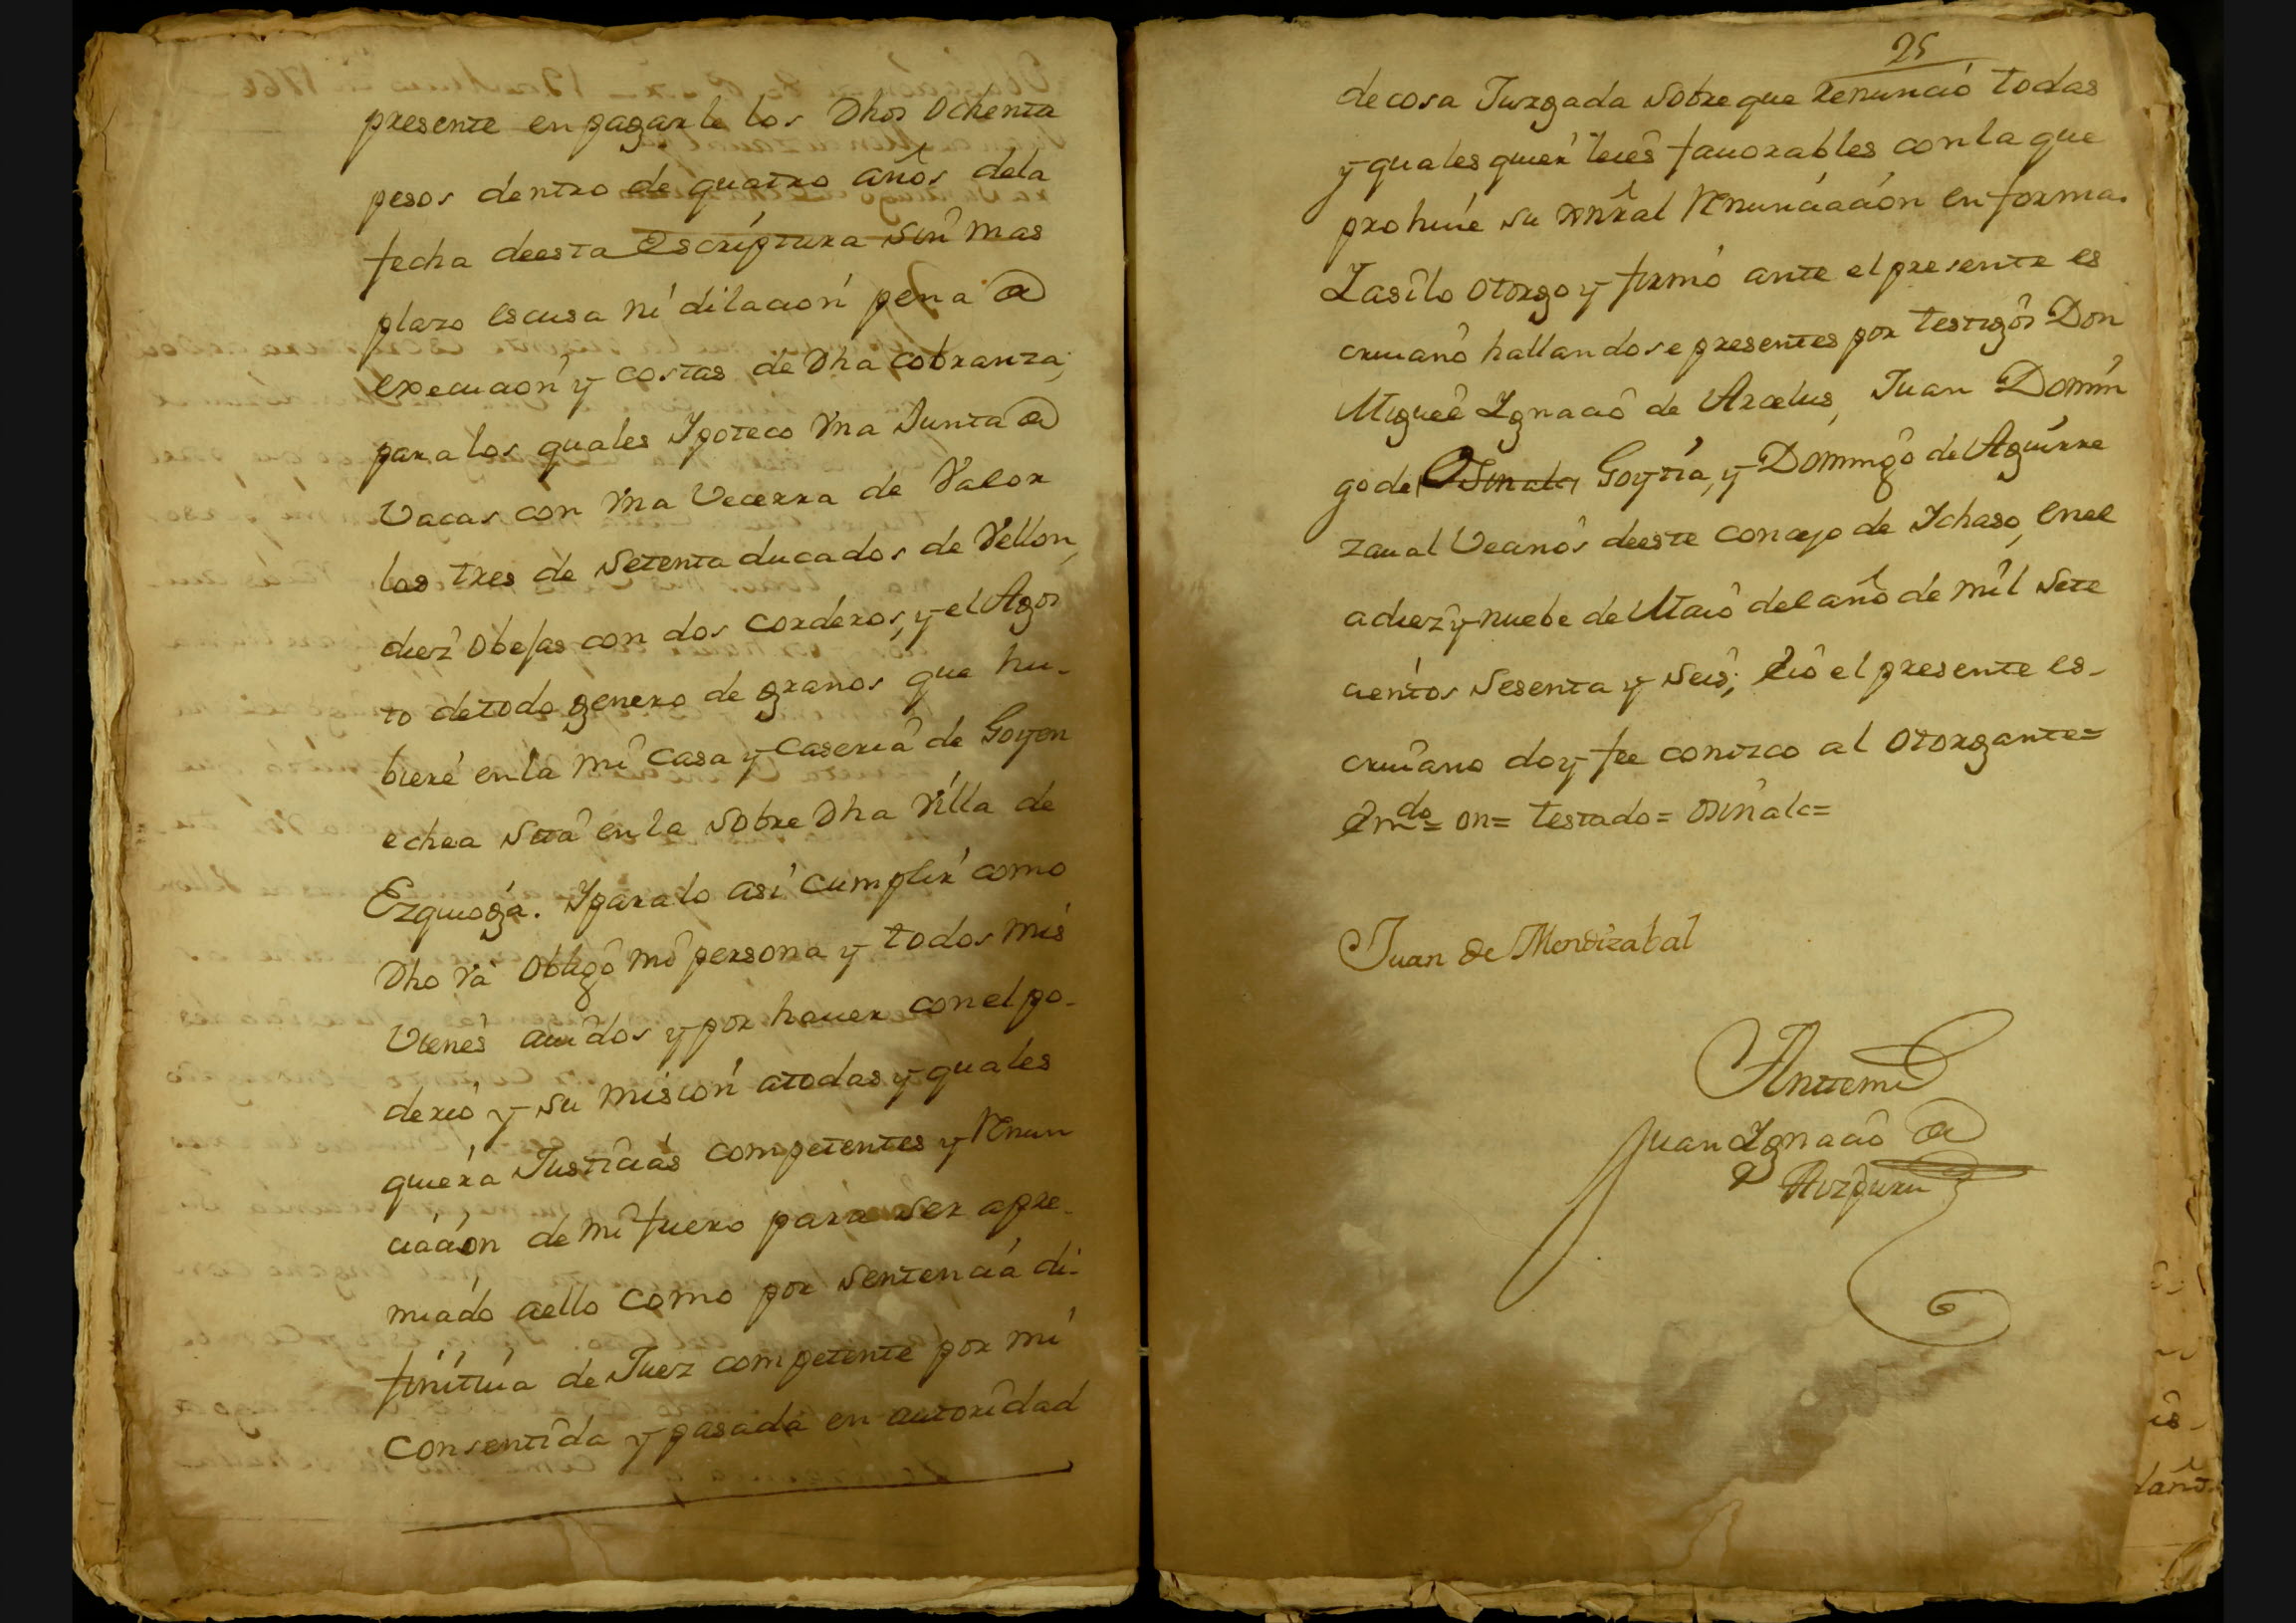 presente en pagarle los Dhos Ochenta
pesos dentro de quatro años dela
fecha deesta Escriptura sin mas
plazo escusa ni dilacion pena de
execucion y costas de Dha cobranza,
para los quales Ypoteco Vna Junta de
Vacas con Vna Vecerra de Valor
los tres de setenta ducados de Vellon,
diez obejas con dos corderos, y el Agos
to de todo genero de granos que hu-
biere en la mi casa y caseria de Goyen
echea sita en la sobre Dha Villa de
Ezquioga. Y para lo asi cumplir como
Dho Va obligo mi persona y todos mis
Vienes auidos y por hauer con el po-
derio y sumision a todas y quales
quiera Justicias competentes y Renun
ciacion de mi fuero para ser apre-
miado aello como por sentencia di-
finitiua de Juez competente por mi
consentida y pasada en autoridad
25
de cosa Juzgada sobre que Renuncio todas
y quales quier leies fauorables con la que
prohiue su Gnral Renunciacion en forma.
Y asi lo otorgo y firmo ante el presente es
criuano hallandose presentes por testigos Don
Miguel Ygnacio de Arcelus, Juan Domin
go de Goytia, y Domingo de Aguirre
zaual Vecinos deeste concejo de Ychaso, en el
a diez y nuebe de Maio del año de mil sete
cientos sesenta y seis; e io el presente es-
criuano doy fee conozco al otorgante=
Emdo= on= testado=
Juan de Mendizabal
Antemi
Juan Ygnacio de
Aizpuru